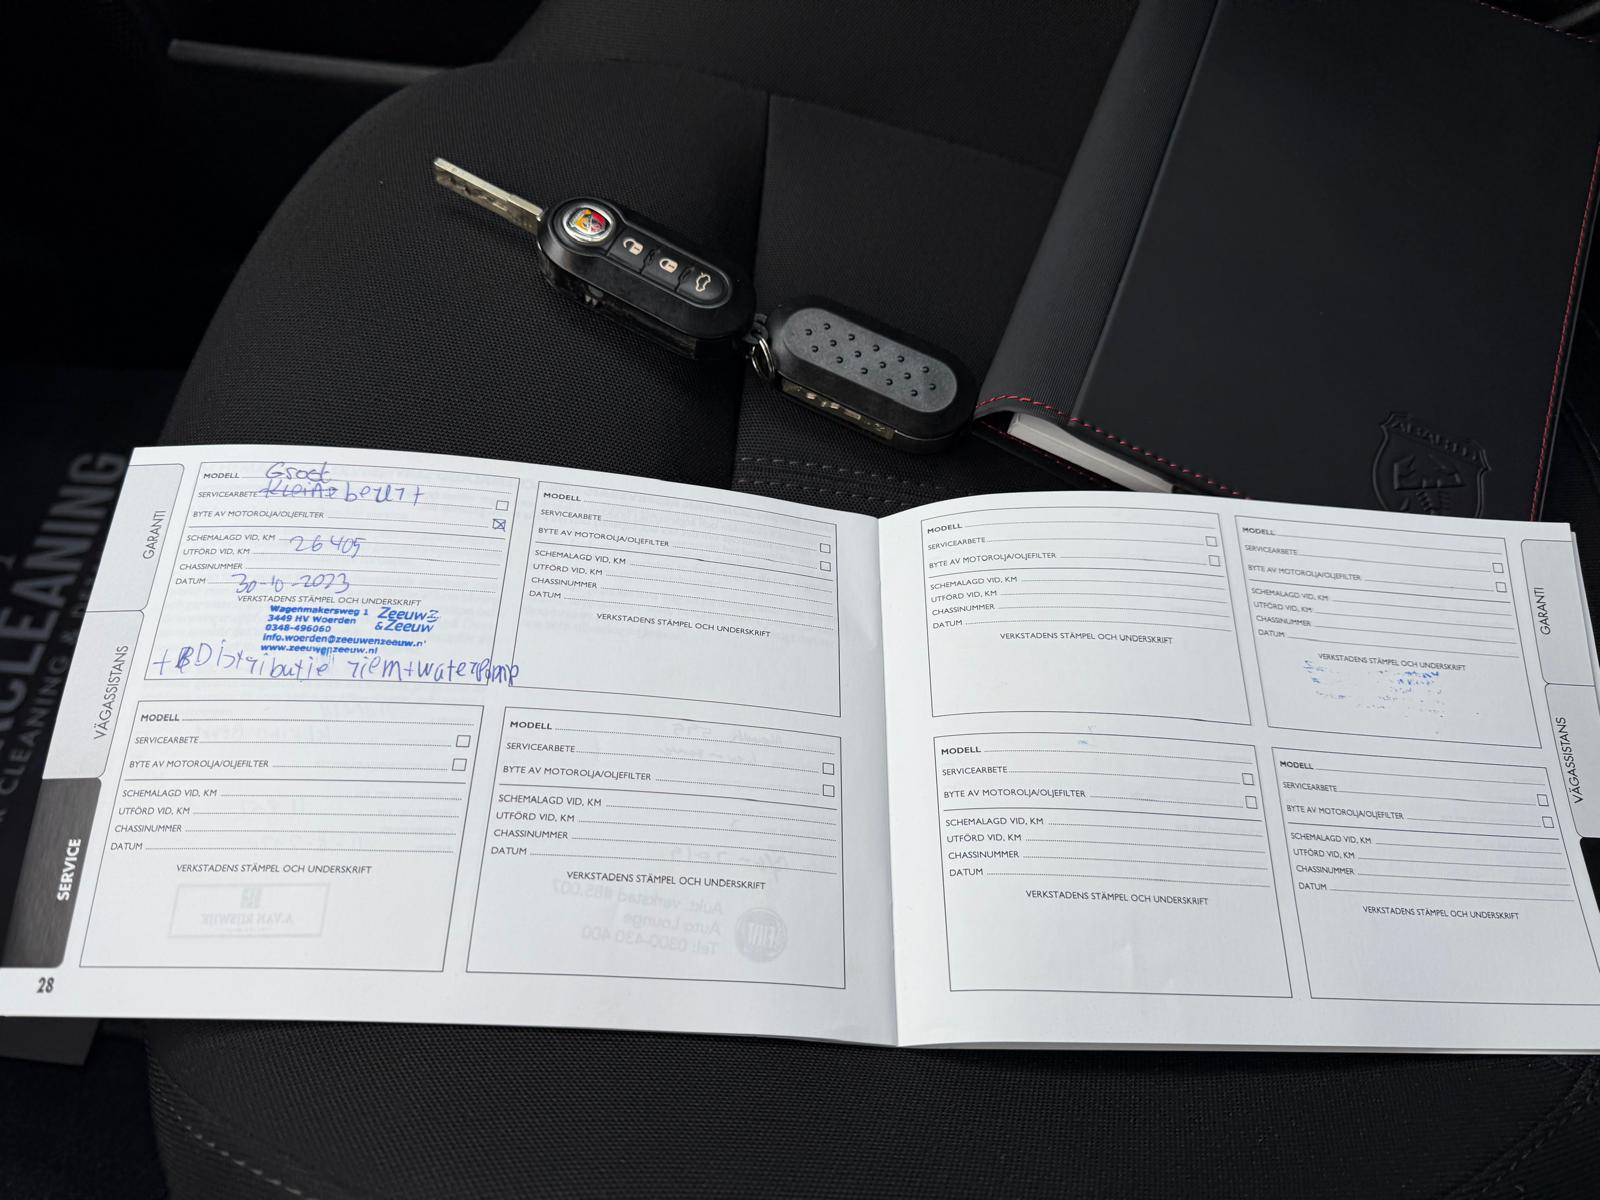 CLEANING
CLEANING
ABARTH
GARANTI
VÄGASSISTANS
SERVICE
28
MODELL Groot
SERVICEARBETE Kleine beurt
BYTE AV MOTOROLJA/OLJEFILTER
SCHEMALAGD VID, KM
UTFÖRD VID, KM 26405
CHASSINUMMER
DATUM 30-10-2023
VERKSTADENS STÄMPEL OCH UNDERSKRIFT
Wagenmakersweg 1
3449 HV Woerden
0348-496060
info.woerden@zeeuwenzeeuw.nl
www.zeeuwenzeeuw.nl
Zeeuw
& Zeeuw
+ Distributie riem + waterpomp
MODELL
SERVICEARBETE
BYTE AV MOTOROLJA/OLJEFILTER
SCHEMALAGD VID, KM
UTFÖRD VID, KM
CHASSINUMMER
DATUM
VERKSTADENS STÄMPEL OCH UNDERSKRIFT
MODELL
SERVICEARBETE
BYTE AV MOTOROLJA/OLJEFILTER
SCHEMALAGD VID, KM
UTFÖRD VID, KM
CHASSINUMMER
DATUM
VERKSTADENS STÄMPEL OCH UNDERSKRIFT
A. VAN RIJSWIJK
MODELL
SERVICEARBETE
BYTE AV MOTOROLJA/OLJEFILTER
SCHEMALAGD VID, KM
UTFÖRD VID, KM
CHASSINUMMER
DATUM
VERKSTADENS STÄMPEL OCH UNDERSKRIFT
Aukt. verkstad #85.007
Auto Lounge
Tel: 0300-430 400
FIAT
MODELL
SERVICEARBETE
BYTE AV MOTOROLJA/OLJEFILTER
SCHEMALAGD VID, KM
UTFÖRD VID, KM
CHASSINUMMER
DATUM
VERKSTADENS STÄMPEL OCH UNDERSKRIFT
MODELL
SERVICEARBETE
BYTE AV MOTOROLJA/OLJEFILTER
SCHEMALAGD VID, KM
UTFÖRD VID, KM
CHASSINUMMER
DATUM
VERKSTADENS STÄMPEL OCH UNDERSKRIFT
MODELL
SERVICEARBETE
BYTE AV MOTOROLJA/OLJEFILTER
SCHEMALAGD VID, KM
UTFÖRD VID, KM
CHASSINUMMER
DATUM
VERKSTADENS STÄMPEL OCH UNDERSKRIFT
MODELL
SERVICEARBETE
BYTE AV MOTOROLJA/OLJEFILTER
SCHEMALAGD VID, KM
UTFÖRD VID, KM
CHASSINUMMER
DATUM
VERKSTADENS STÄMPEL OCH UNDERSKRIFT
GARANTI
VÄGASSISTANS